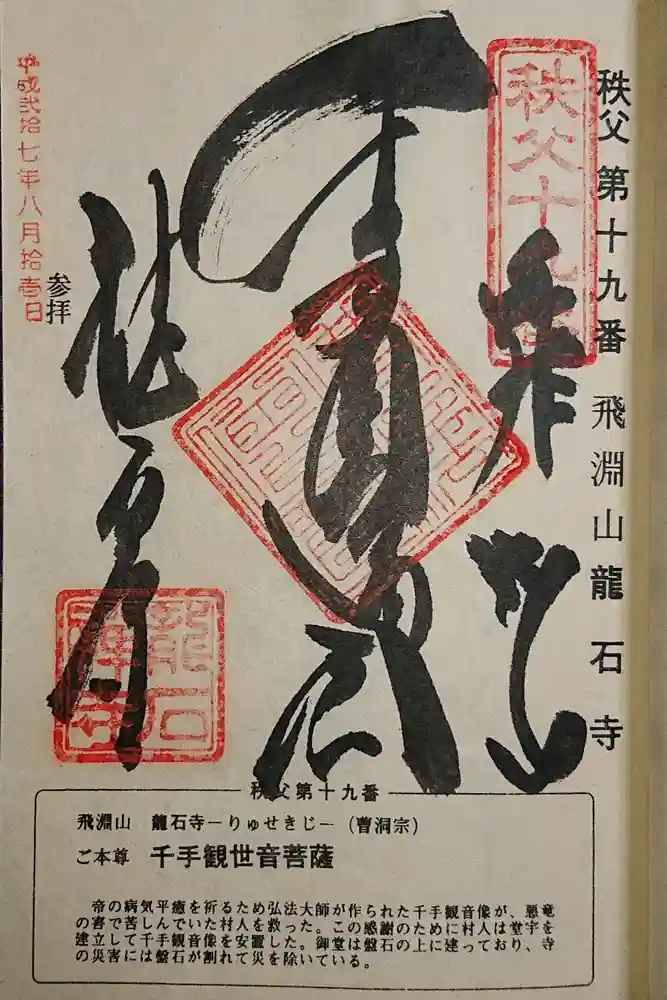 秩父 第十九番 飛淵山龍石寺
秩父十九番
奉拝
千手
参拝
平成弐拾七年八月拾壱日
龍石
禅寺
秩父第十九番
飛淵山 龍石寺—りゅせきじ—(曹洞宗)
ご本尊 千手観世音菩薩
帝の病気平癒を祈るため弘法大師が作られた千手観音像が、悪竜
の害で苦しんでいた村人を救った。この感謝のために村人は堂宇を
建立して千手観音像を安置した。御堂は盤石の上に建っており、寺
の災害には盤石が割れて災を除いている。